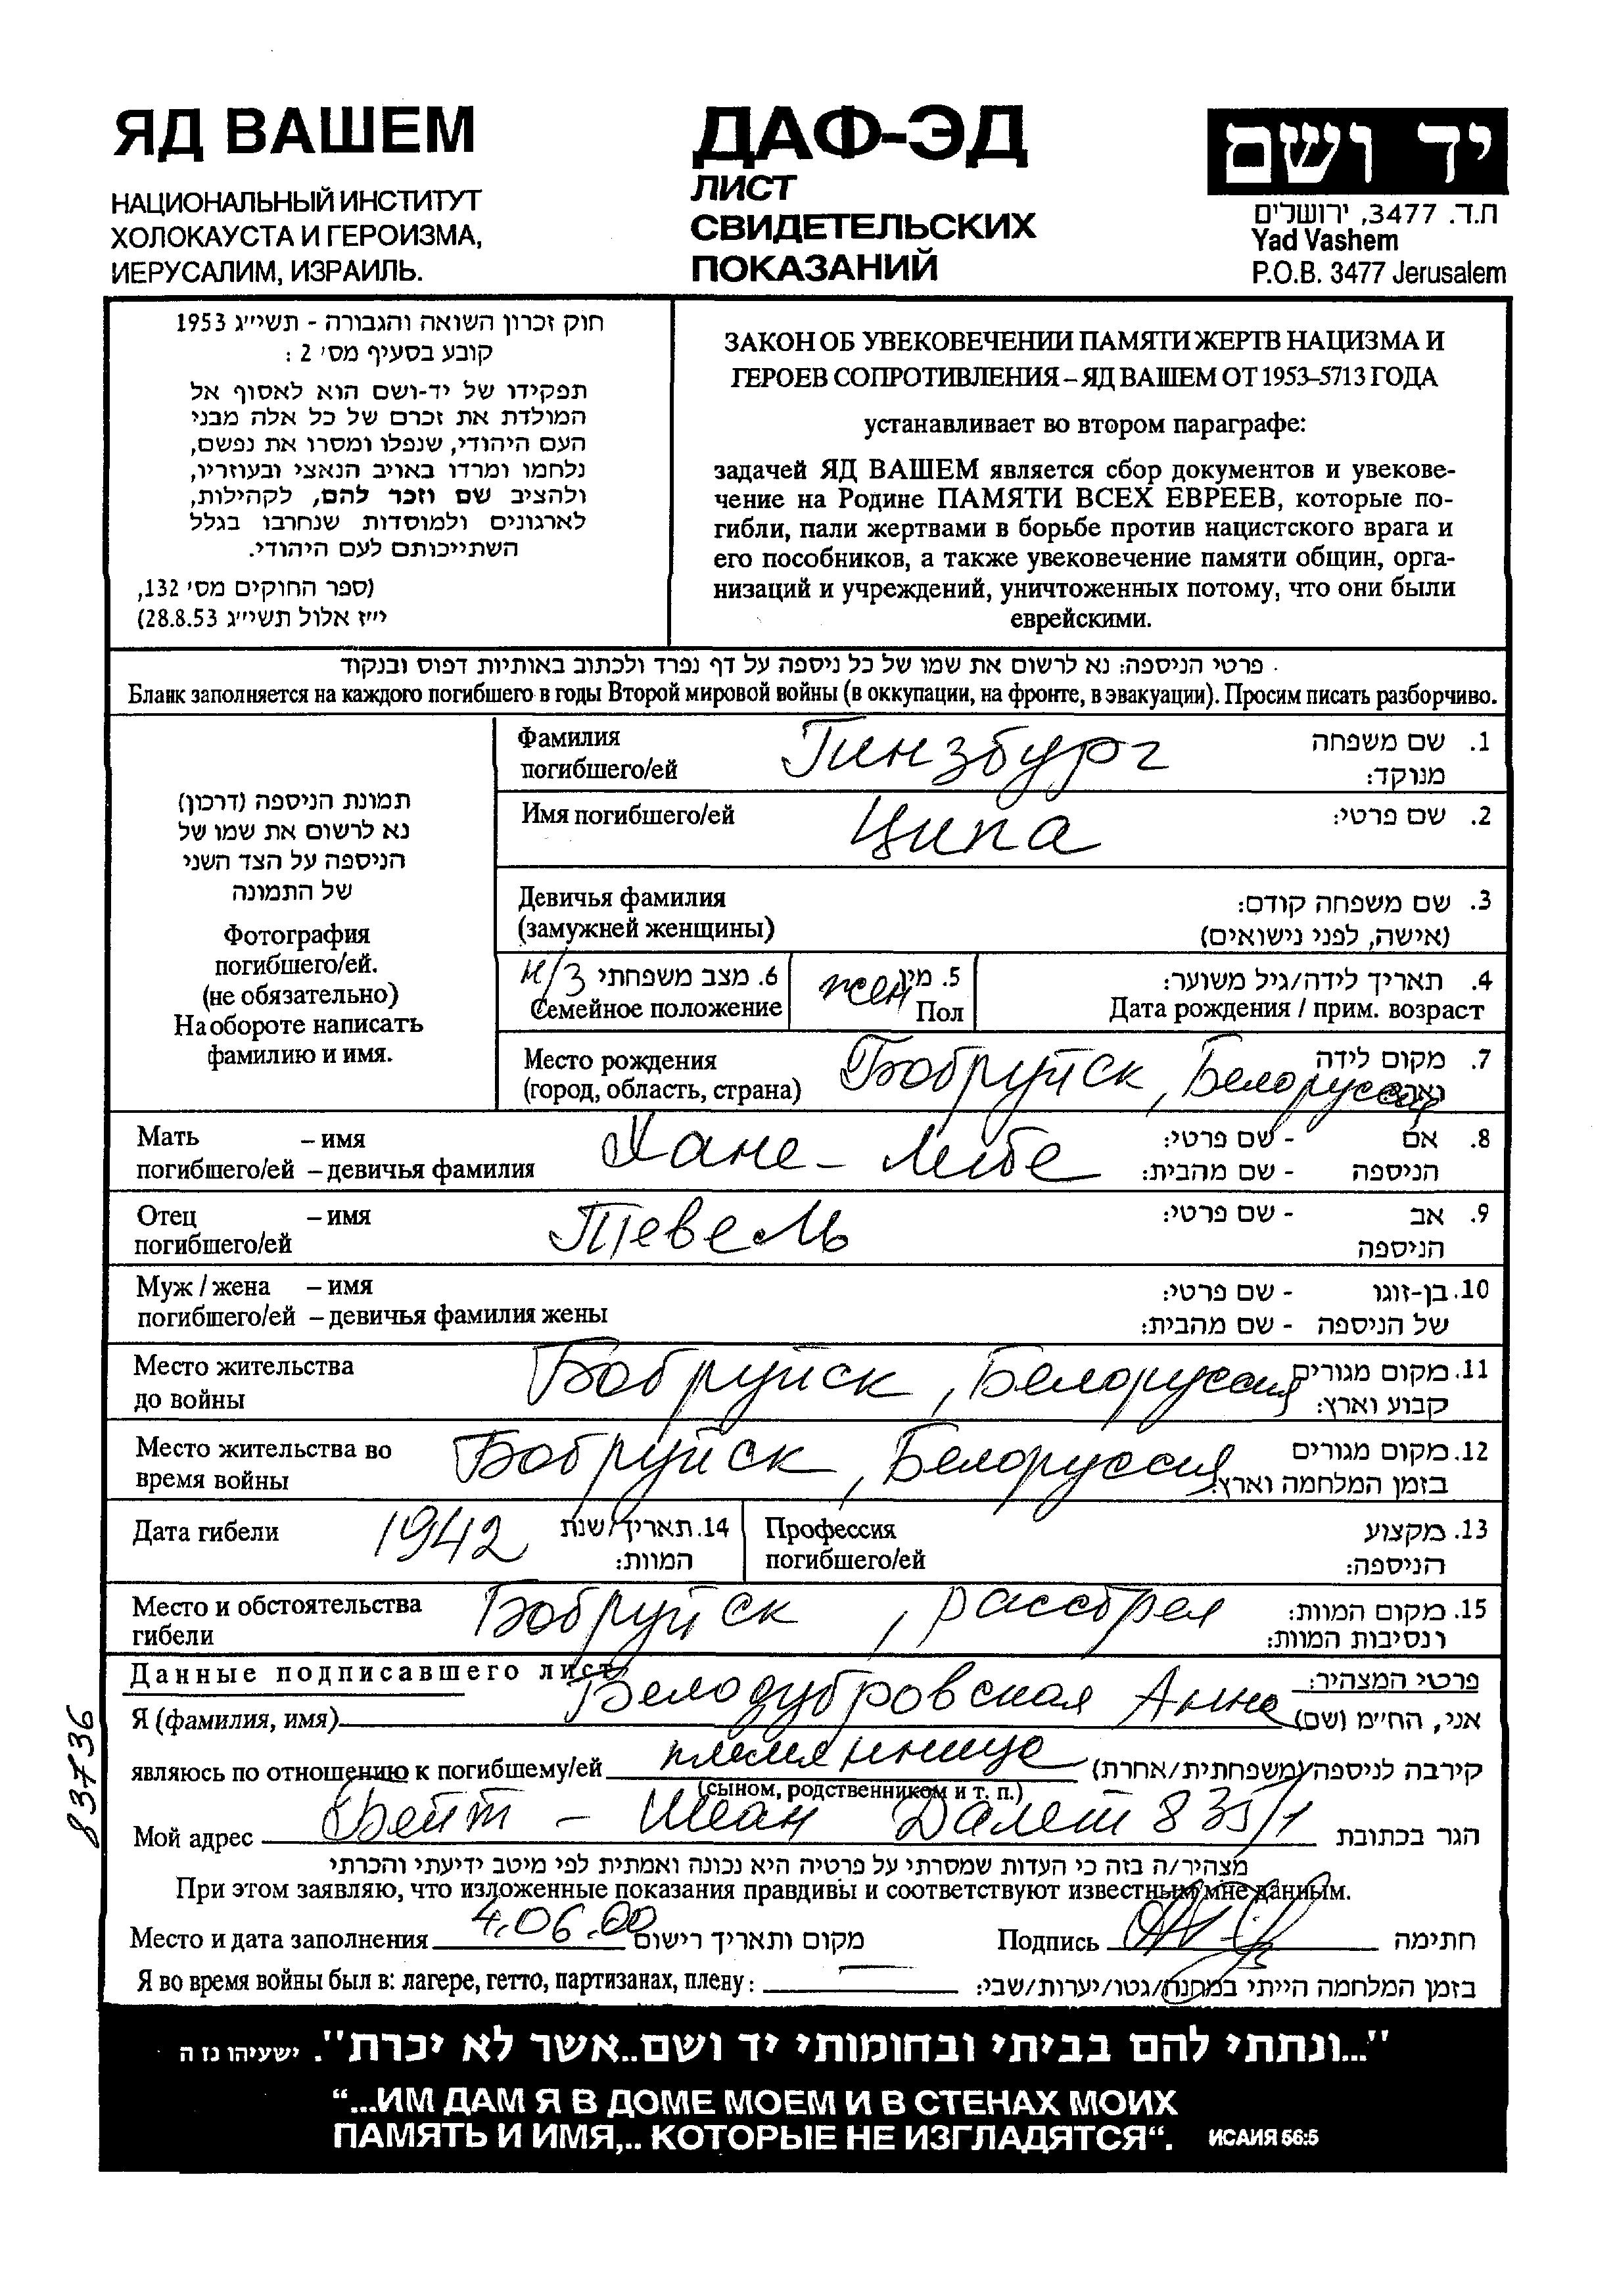 ЯД ВАШЕМ
НАЦИОНАЛЬНЫЙ ИНСТИТУТ
ХОЛОКАУСТА И ГЕРОИЗМА,
ИЕРУСАЛИМ, ИЗРАИЛЬ.
ДАФ-ЭД
ЛИСТ
СВИДЕТЕЛЬСКИХ
ПОКАЗАНИЙ
יד ושם
ת.ד. 3477, ירושלים
Yad Vashem
P.O.B. 3477 Jerusalem
חוק זכרון השואה והגבורה - תשי״ג 1953
קובע בסעיף מס׳ 2 :
תפקידו של יד-ושם הוא לאסוף אל
המולדת את זכרם של כל אלה מבני
העם היהודי, שנפלו ומסרו את נפשם,
נלחמו ומרדו באויב הנאצי ובעוזריו,
ולהציב שם וזכר להם, לקהילות,
לארגונים ולמוסדות שנחרבו בגלל
השתייכותם לעם היהודי.
(ספר החוקים מס׳ 132,
י״ז אלול תשי״ג 28.8.53)
ЗАКОН ОБ УВЕКОВЕЧЕНИИ ПАМЯТИ ЖЕРТВ НАЦИЗМА И
ГЕРОЕВ СОПРОТИВЛЕНИЯ – ЯД ВАШЕМ ОТ 1953–5713 ГОДА
устанавливает во втором параграфе:
задачей ЯД ВАШЕМ является сбор документов и увекове-
чение на Родине ПАМЯТИ ВСЕХ ЕВРЕЕВ, которые по-
гибли, пали жертвами в борьбе против нацистского врага и
его пособников, а также увековечение памяти общин, орга-
низаций и учреждений, уничтоженных потому, что они были
еврейскими.
פרטי הניספה: נא לרשום את שמו של כל ניספה על דף נפרד ולכתוב באותיות דפוס ובנקוד
Бланк заполняется на каждого погибшего в годы Второй мировой войны (в оккупации, на фронте, в эвакуации). Просим писать разборчиво.
תמונת הניספה (דרכון)
נא לרשום את שמו של
הניספה על הצד השני
של התמונה
Фотография
погибшего/ей.
(не обязательно)
На обороте написать
фамилию и имя.
Фамилия Гинзбург 1. שם משפחה
погибшего/ей מנוקד:
Имя погибшего/ей Ципа 2. שם פרטי:
Девичья фамилия 3. שם משפחה קודם:
(замужней женщины) (אישה, לפני נישואים)
н/з 6. מצב משפחתי жен 5. מין 4. תאריך לידה/גיל משוער:
Семейное положение Пол Дата рождения / прим. возраст
Место рождения Бобруйск, Белоруссия 7. מקום לידה
(город, область, страна) וארץ:
Мать – имя Хане-Либе 8. אם - שם פרטי:
погибшего/ей – девичья фамилия הניספה - שם מהבית:
Отец – имя Тевель 9. אב - שם פרטי:
погибшего/ей הניספה
Муж / жена – имя 10. בן-זוגו - שם פרטי:
погибшего/ей – девичья фамилия жены של הניספה - שם מהבית:
Место жительства Бобруйск, Белоруссия 11. מקום מגורים
до войны קבוע וארץ:
Место жительства во Бобруйск, Белоруссия 12. מקום מגורים
время войны בזמן המלחמה וארץ:
Дата гибели 1942 14. תאריך/שנת Профессия 13. מקצוע
המוות: погибшего/ей הניספה:
Место и обстоятельства Бобруйск, расстрел 15. מקום המוות:
гибели ונסיבות המוות:
Данные подписавшего лист פרטי המצהיר:
Я (фамилия, имя) Белодубровская Анна אני, הח״מ (שם)
являюсь по отношению к погибшему/ей племянница קירבה לניספה (משפחתית/אחרת)
(сыном, родственником и т. п.)
Мой адрес Бейт-Шеан Далет 835/1 הגר בכתובת
מצהיר/ה בזה כי העדות שמסרתי על פרטיה היא נכונה ואמתית לפי מיטב ידיעתי והכרתי
При этом заявляю, что изложенные показания правдивы и соответствуют известным мне данным.
Место и дата заполнения 4.06.00 מקום ותאריך רישום Подпись חתימה
Я во время войны был в: лагере, гетто, партизанах, плену: — בזמן המלחמה הייתי במחנה/גטו/יערות/שבי:
83736
"...ונתתי להם בביתי ובחומותי יד ושם..אשר לא יכרת". ישעיהו נז ה
“...ИМ ДАМ Я В ДОМЕ МОЕМ И В СТЕНАХ МОИХ
ПАМЯТЬ И ИМЯ,.. КОТОРЫЕ НЕ ИЗГЛАДЯТСЯ“. ИСАИЯ 56:5